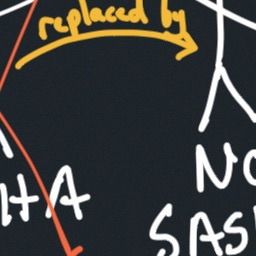 replaced by
HA
NO
SAS